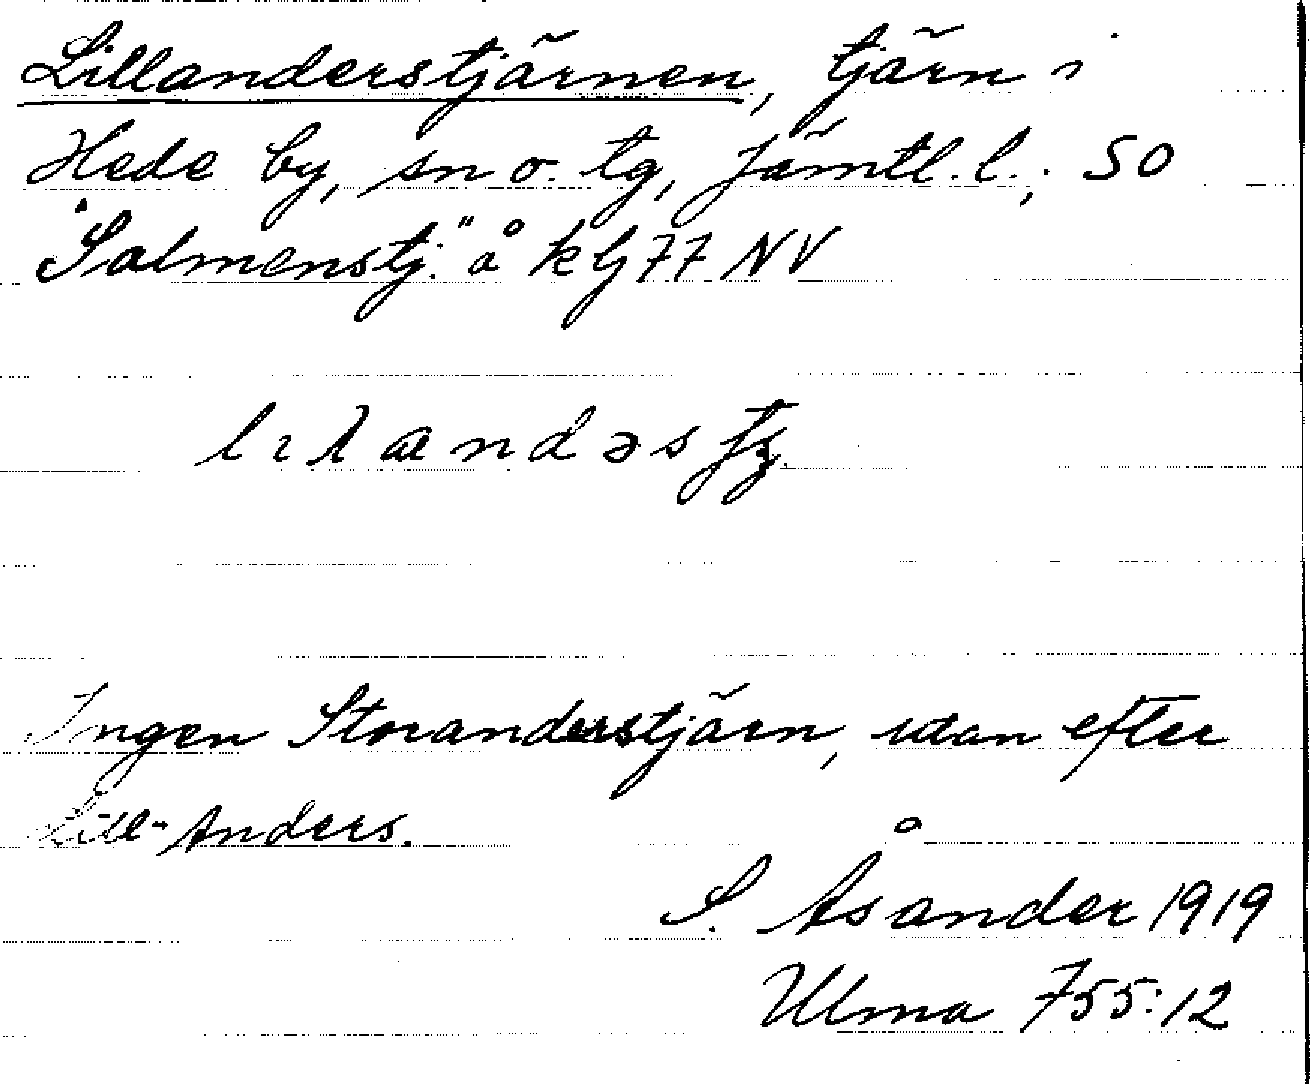 Lillanderstjärnen, tjärn i
Hede by, sn o. tg, Jämtl. l.; SO
"Salmenstj." å kbl 77 NV
Ingen Storanderstjärn, utan efter
Lill-Anders.
S. Åsander 1919
Ulma 755:12